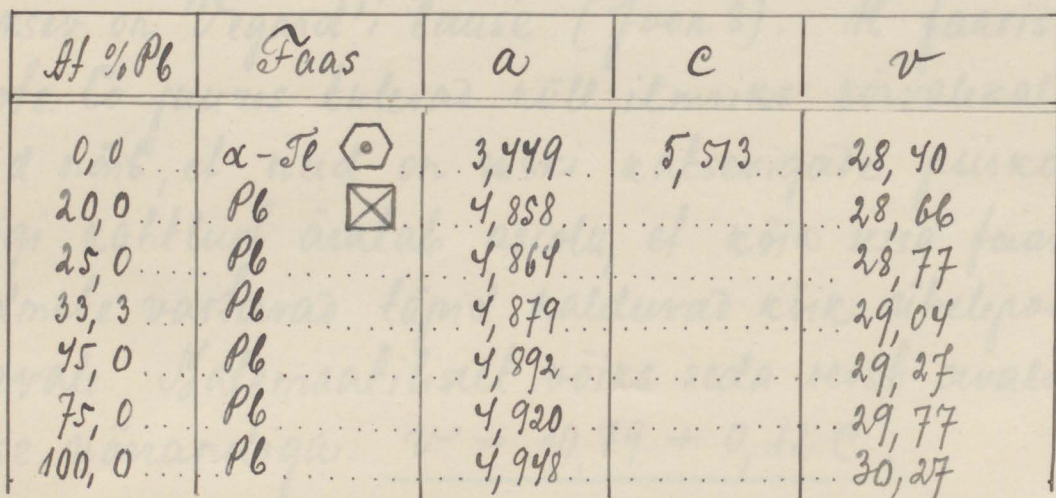 At % Pb Faas a c v
0,0 α-Tl 3,449 5,513 28,40
20,0 Pb 4,858 28,66
25,0 Pb 4,864 28,77
33,3 Pb 4,879 29,04
45,0 Pb 4,892 29,27
75,0 Pb 4,920 29,77
100,0 Pb 4,948 30,27